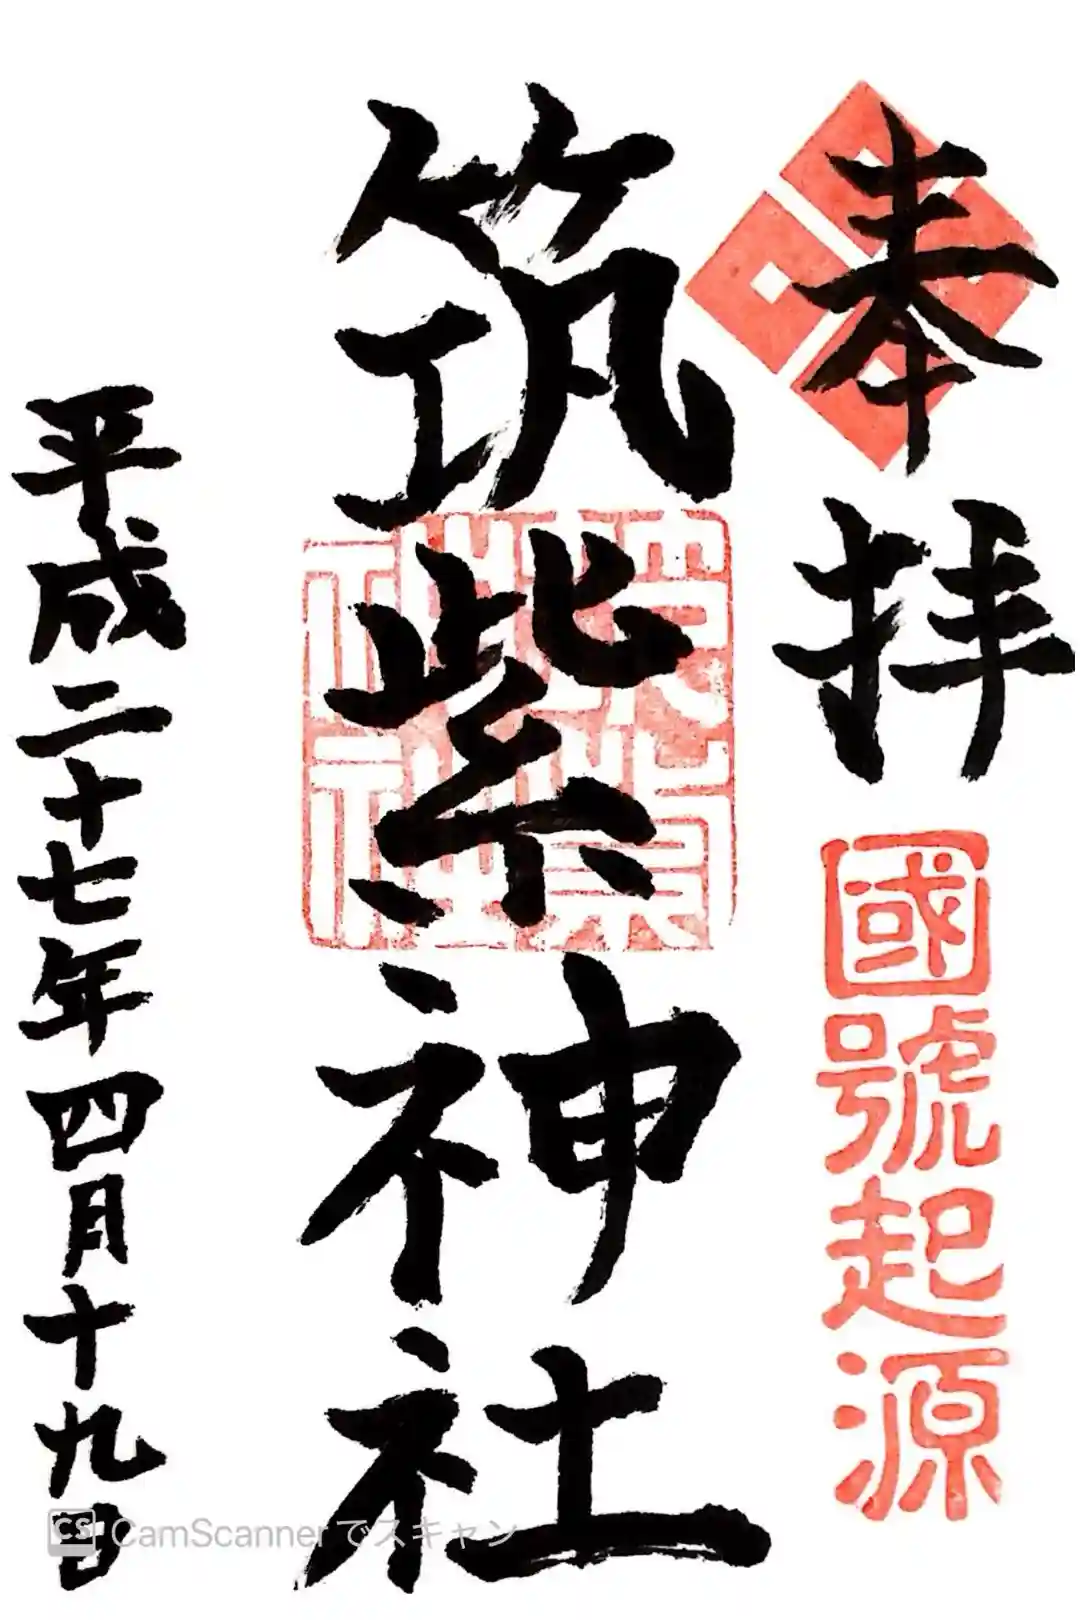 奉拝
國號起源
筑紫神社
平成二十七年四月十九日
CS CamScannerでスキャン